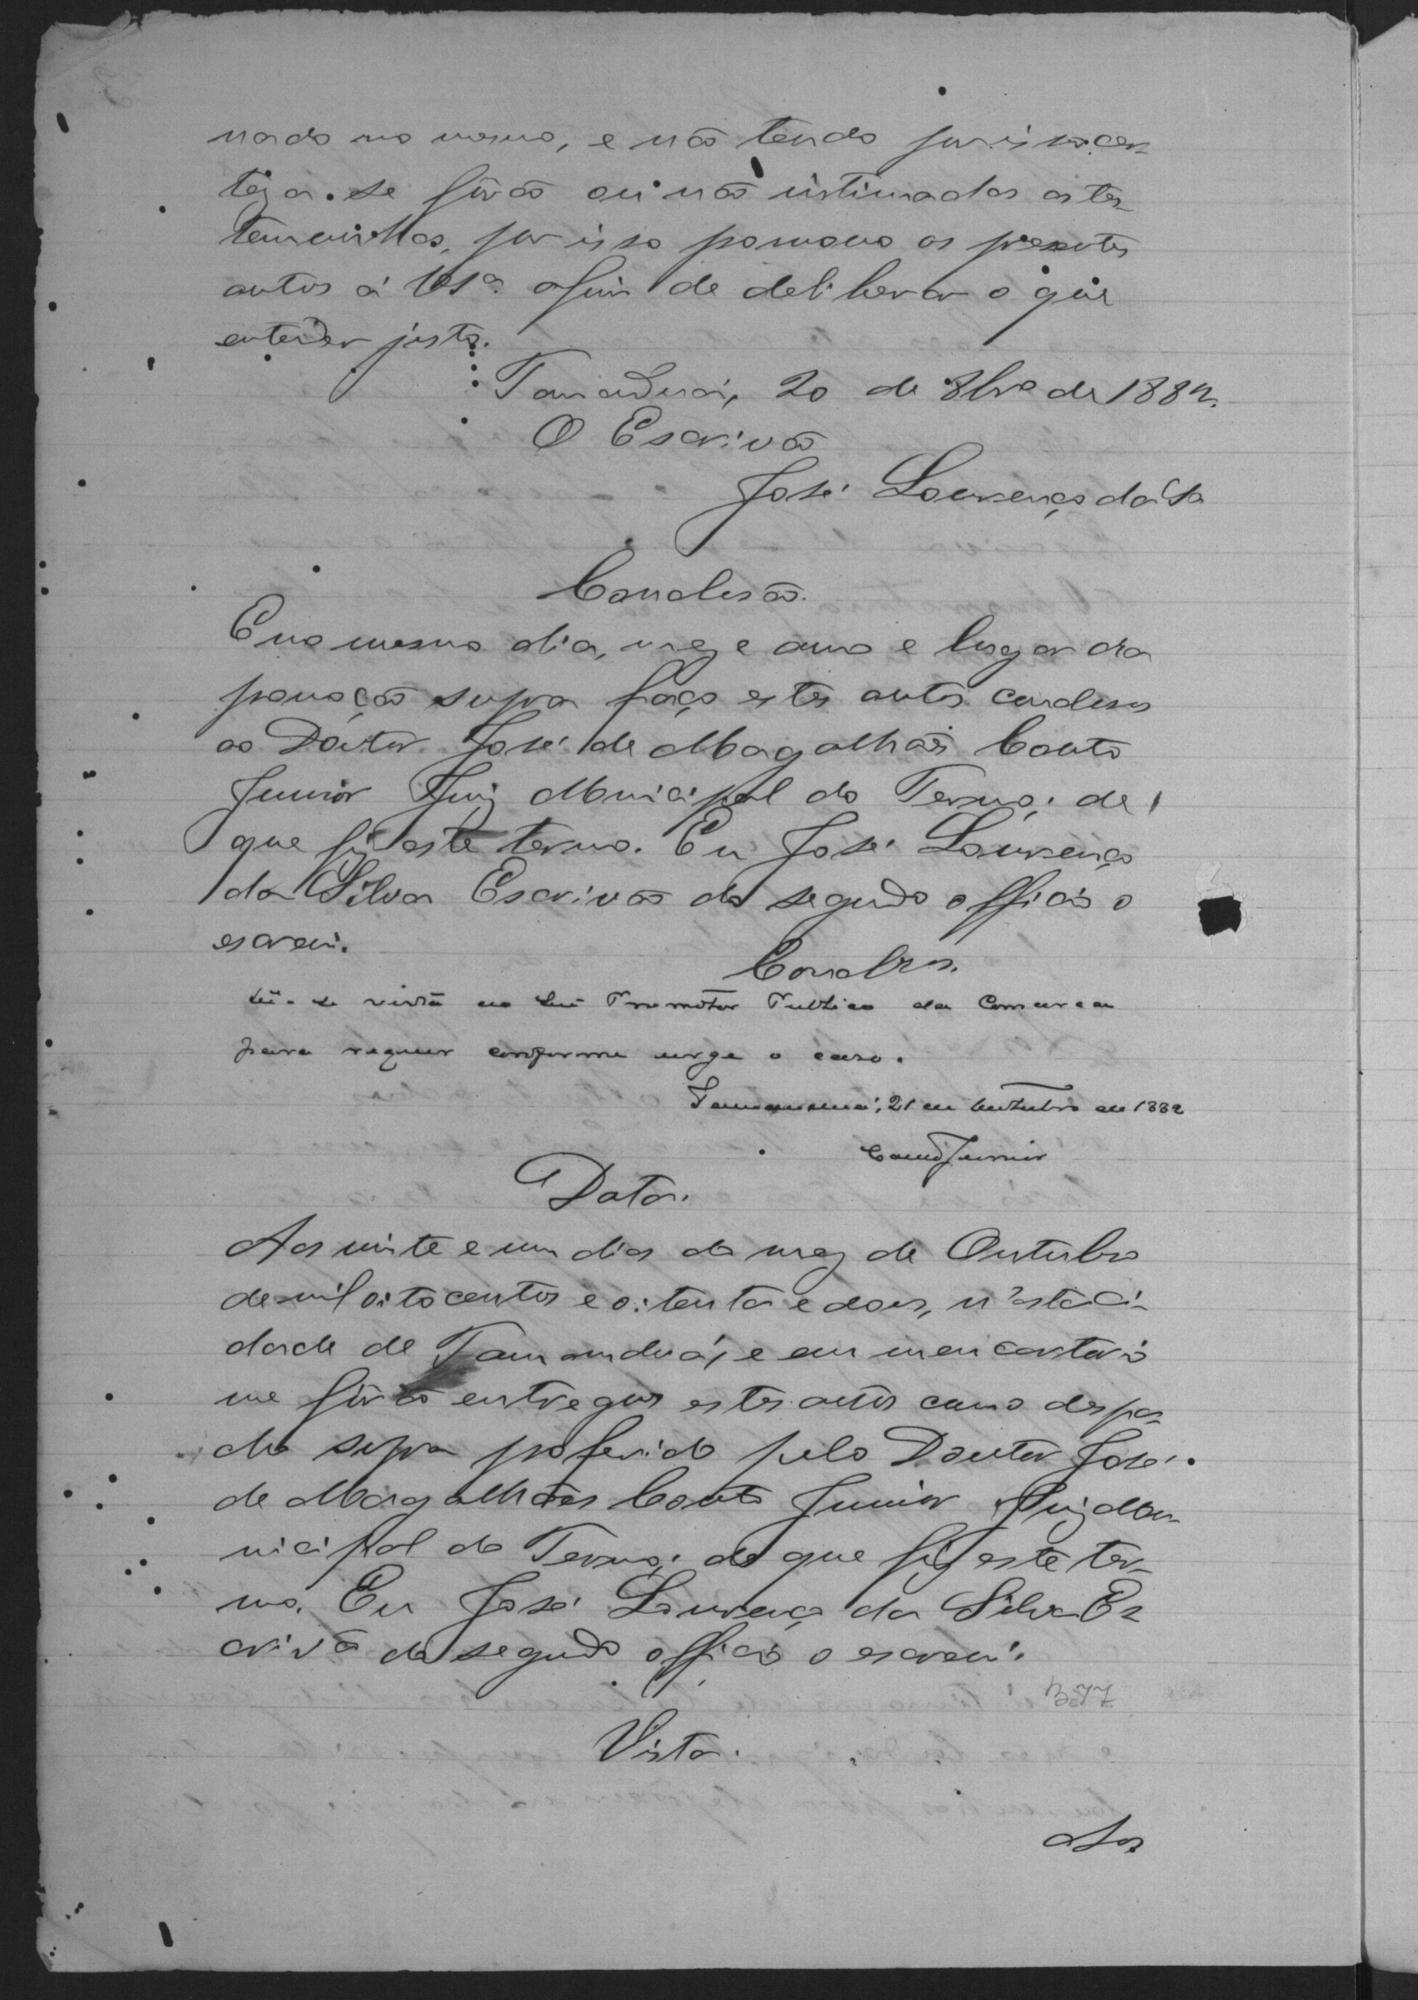 nado no mesmo, e não tendo por isso cer-
teza se fôrão ou não intimadas as tes-
temunhas, por isso promovo os presentes
autos á V.Sª. afim de deliberar o que
entender justo.
Tamanduá, 20 de 8brº de 1882.
O Escrivão
José Lourenço da Sª
Conclusão.
E no mesmo dia, mez e anno e lugar da
promoção supra faço estes autos conclusos
ao Doutor José de Magalhães Couto
Junior Juiz Municipal do Termo; de
que fiz este termo. Eu José Lourenço
da Silva Escrivão do segundo officio o
escrevi.
Conclsos.
Dê-se vista ao Snr Promotor Publico da Comarca
para requer conforme urge o caso.
Tamanduá, 21 de Outubro de 1882
Couto Junior
Data.
Aos vinte e um dias do mez de Outubro
de mil oitocentos e oitenta e dous, n'esta ci-
dade de Tamanduá, e em meu cartorio
me fôrão entregues estes autos como despa-
cho supra proferido pelo Doutor José
de Magalhães Couto Junior Juiz Mu-
nicipal do Termo; do que fiz este ter-
mo. Eu José Lourenço da Silva Es
crivão do segundo officio o escrevi.
Vista.
Aos